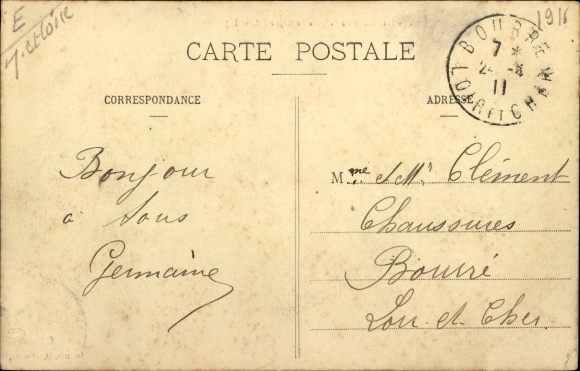 E
I. et Loire
1911
CARTE POSTALE
CORRESPONDANCE
ADRESSE
BOURRE
7 *
2 - 4
11
LOIR ET CHER
Bonjour
à tous
Germaine
Mme et Mr Clément
Chaussures
Bourré
Loir-et-Cher